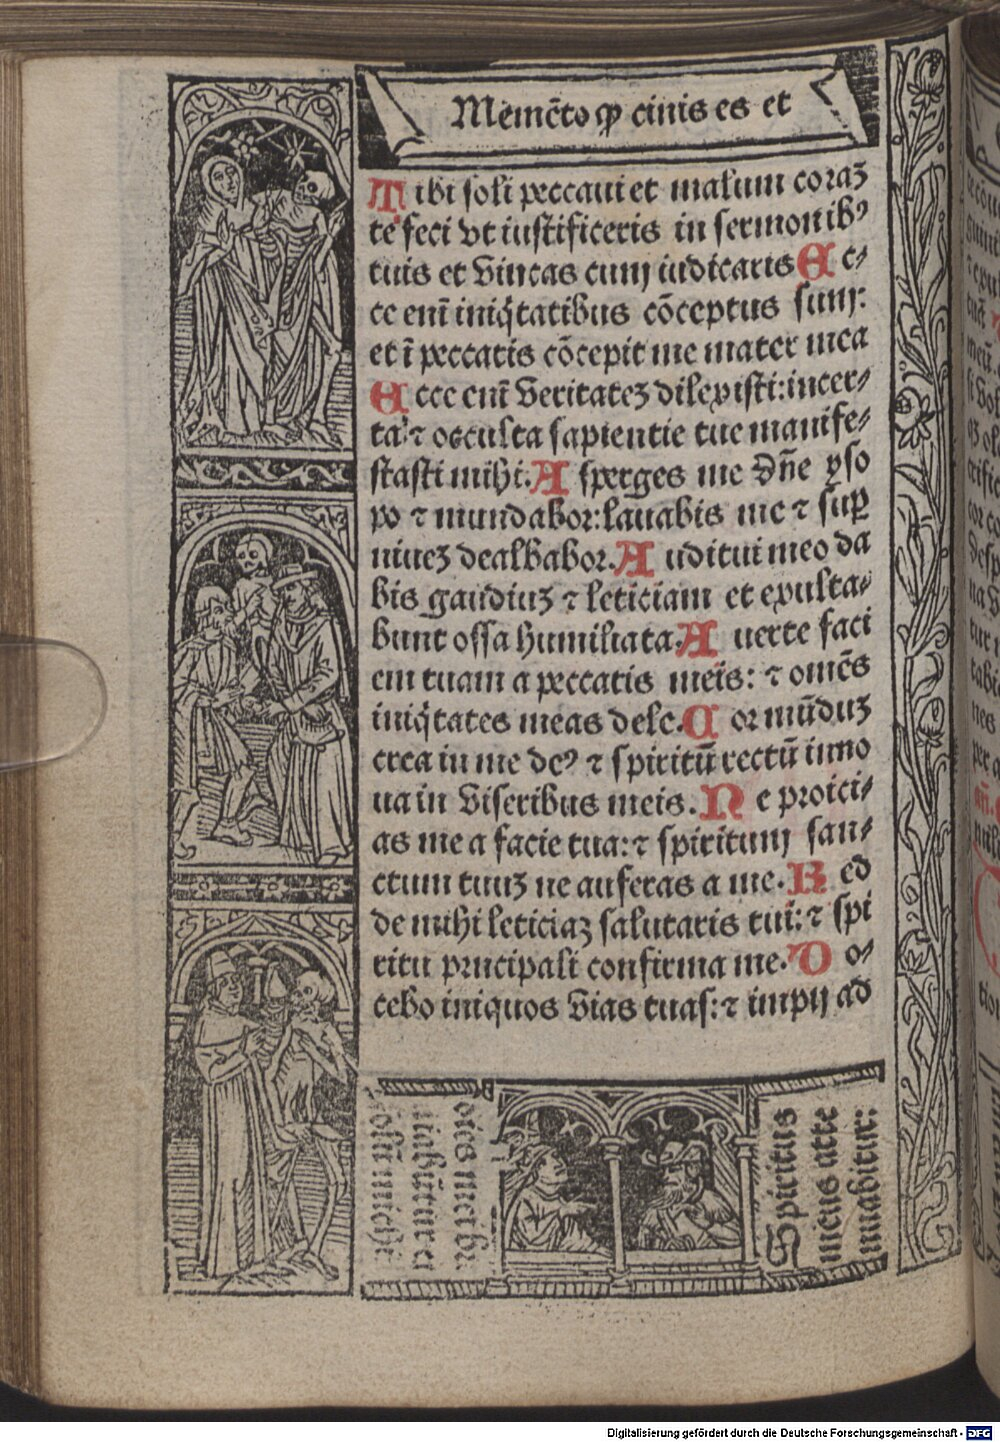 Memēto ꝙ cinis es et
Tibi soli peccaui et malum coraꝫ
te feci vt iustificeris in sermonibꝰ
tuis et vincas cum iudicaris Ec-
ce eni̅ iniq̃tatibus cōceptus sum:
et ī peccatis cōcepit me mater mea
Ecce eni̅ veritateꝫ dilexisti: incer-
ta ⁊ occulta sapientie tue manife-
stasti mihi. Asperges me dn̄e yso
po ⁊ mundabor: lauabis me ⁊ suꝑ
niueꝫ dealbabor. Auditui meo da
bis gaudiuꝫ ⁊ leticiam et exulta-
bunt ossa humiliata. Auerte faci
em tuam a peccatis meis: ⁊ omēs
iniq̃tates meas dele. Cor mūduꝫ
crea in me deꝰ ⁊ spiritū rectū inno
ua in visceribus meis. Ne proici-
as me a facie tua: ⁊ spiritum san-
ctum tuuꝫ ne auferas a me. Red
de mihi leticiaꝫ salutaris tui: ⁊ spi
ritu prncipali confirma me. Do-
cebo iniquos vias tuas: ⁊ impij ad
Spiritus
meus atte
nuabitur:
Digitalisierung gefördert durch die Deutsche Forschungsgemeinschaft - DFG